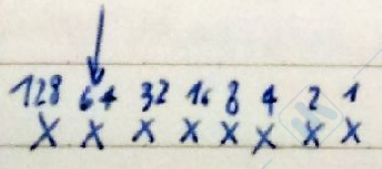 128 64 32 16 8 4 2 1
X X X X X X X X